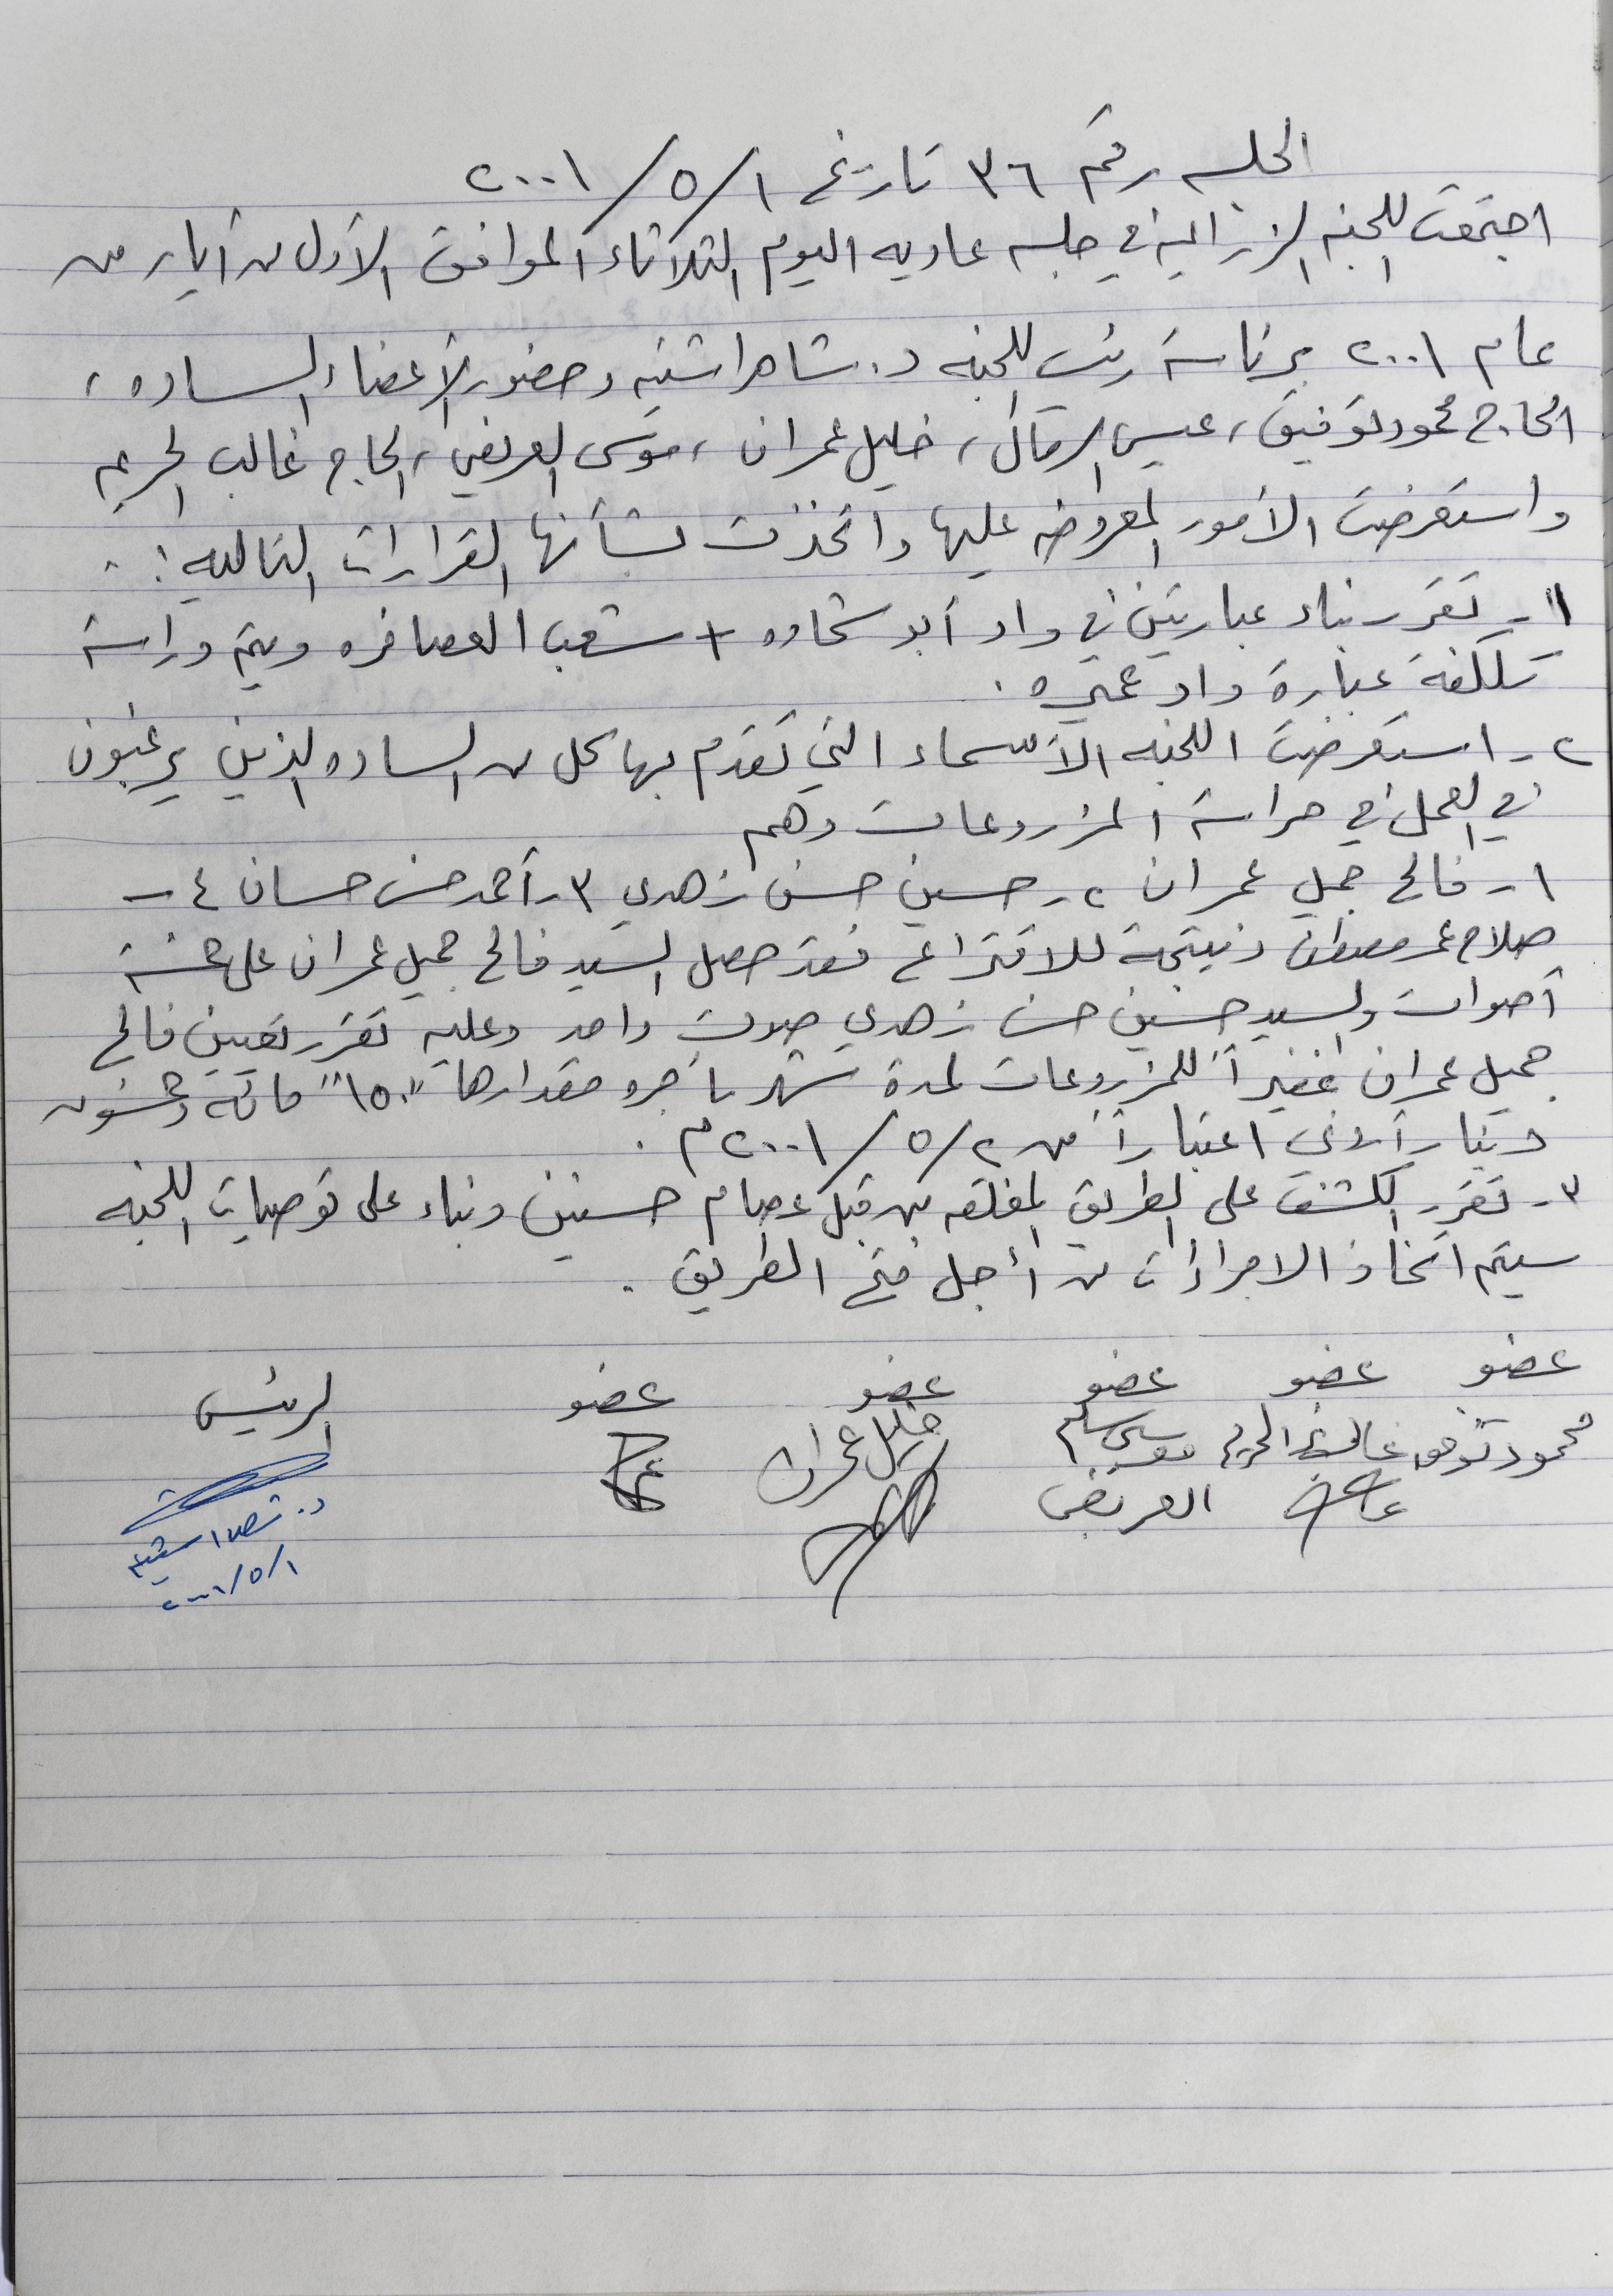 الجلسه رقم ٣٦ تاريخ ١/٥/٢٠٠١
اجتمعت اللجنه الزراعية في جلسه عاديه اليوم الثلاثاء الموافق الأول من أيار من
عام ٢٠٠١ برئاسة رئيس اللجنه د. شاهر اشتيه وحضور الأعضاء الساده،
الحاج محمود توفيق، عيسى الرمال، خليل عمران، موسى العريض، الحاج غالب الحريم
واستعرضت الأمور المعروضه عليها واتخذت بشأنها القرارات التاليه :.
١- تقرر بناء عبارتين في واد أبو شحاده + شعب العصافره ويتم دراسة
تكلفة عبارة واد عميره .
٢- استعرضت اللجنه الأسماء التي تقدم بها كل من الساده الذين يرغبون
في العمل في حراسة المزروعات وهم
١- فالح جميل عمران ٢- حسين حسن زهدي ٣- أحمد حسن حسان ٤-
صلاح عمر مصطفى ونتيجة للاقتراع فقد حصل السيد فالح جميل عمران على خمسة
أصوات والسيد حسين حسن زهدي صوت واحد وعليه تقرر تعيين فالح
جميل عمران غفيراً للمزروعات لمدة شهر بأجره مقدارها "١٥٠" مائة وخمسون
دينار أردني اعتباراً من ٢/٥/٢٠٠١م .
٣- تقرر الكشف على الطريق المغلقه من قبل عصام حسنين وبناء على توصيات اللجنه
سيتم اتخاذ الاجراءات من أجل فتح الطريق .
عضو عضو عضو عضو عضو الرئيس
محمود توفيق غالب الحريم موسى سليم خليل عمران
العريض
د. شاهر اشتيه
١/٥/٢٠٠١